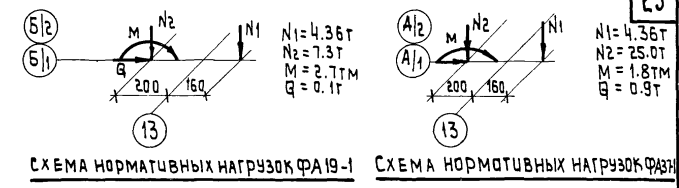 Б/2
Б/1
M
N2
N1
Q
200
160
13
N1=4.36т
N2=7.3т
M=2.7тм
Q=0.1т
СХЕМА НОРМАТИВНЫХ НАГРУЗОК ФА19-1
А/2
А/1
M
N2
N1
200
160
13
N1=4.36т
N2=25.0т
M=1.8тм
Q=0.9т
СХЕМА НОРМАТИВНЫХ НАГРУЗОК